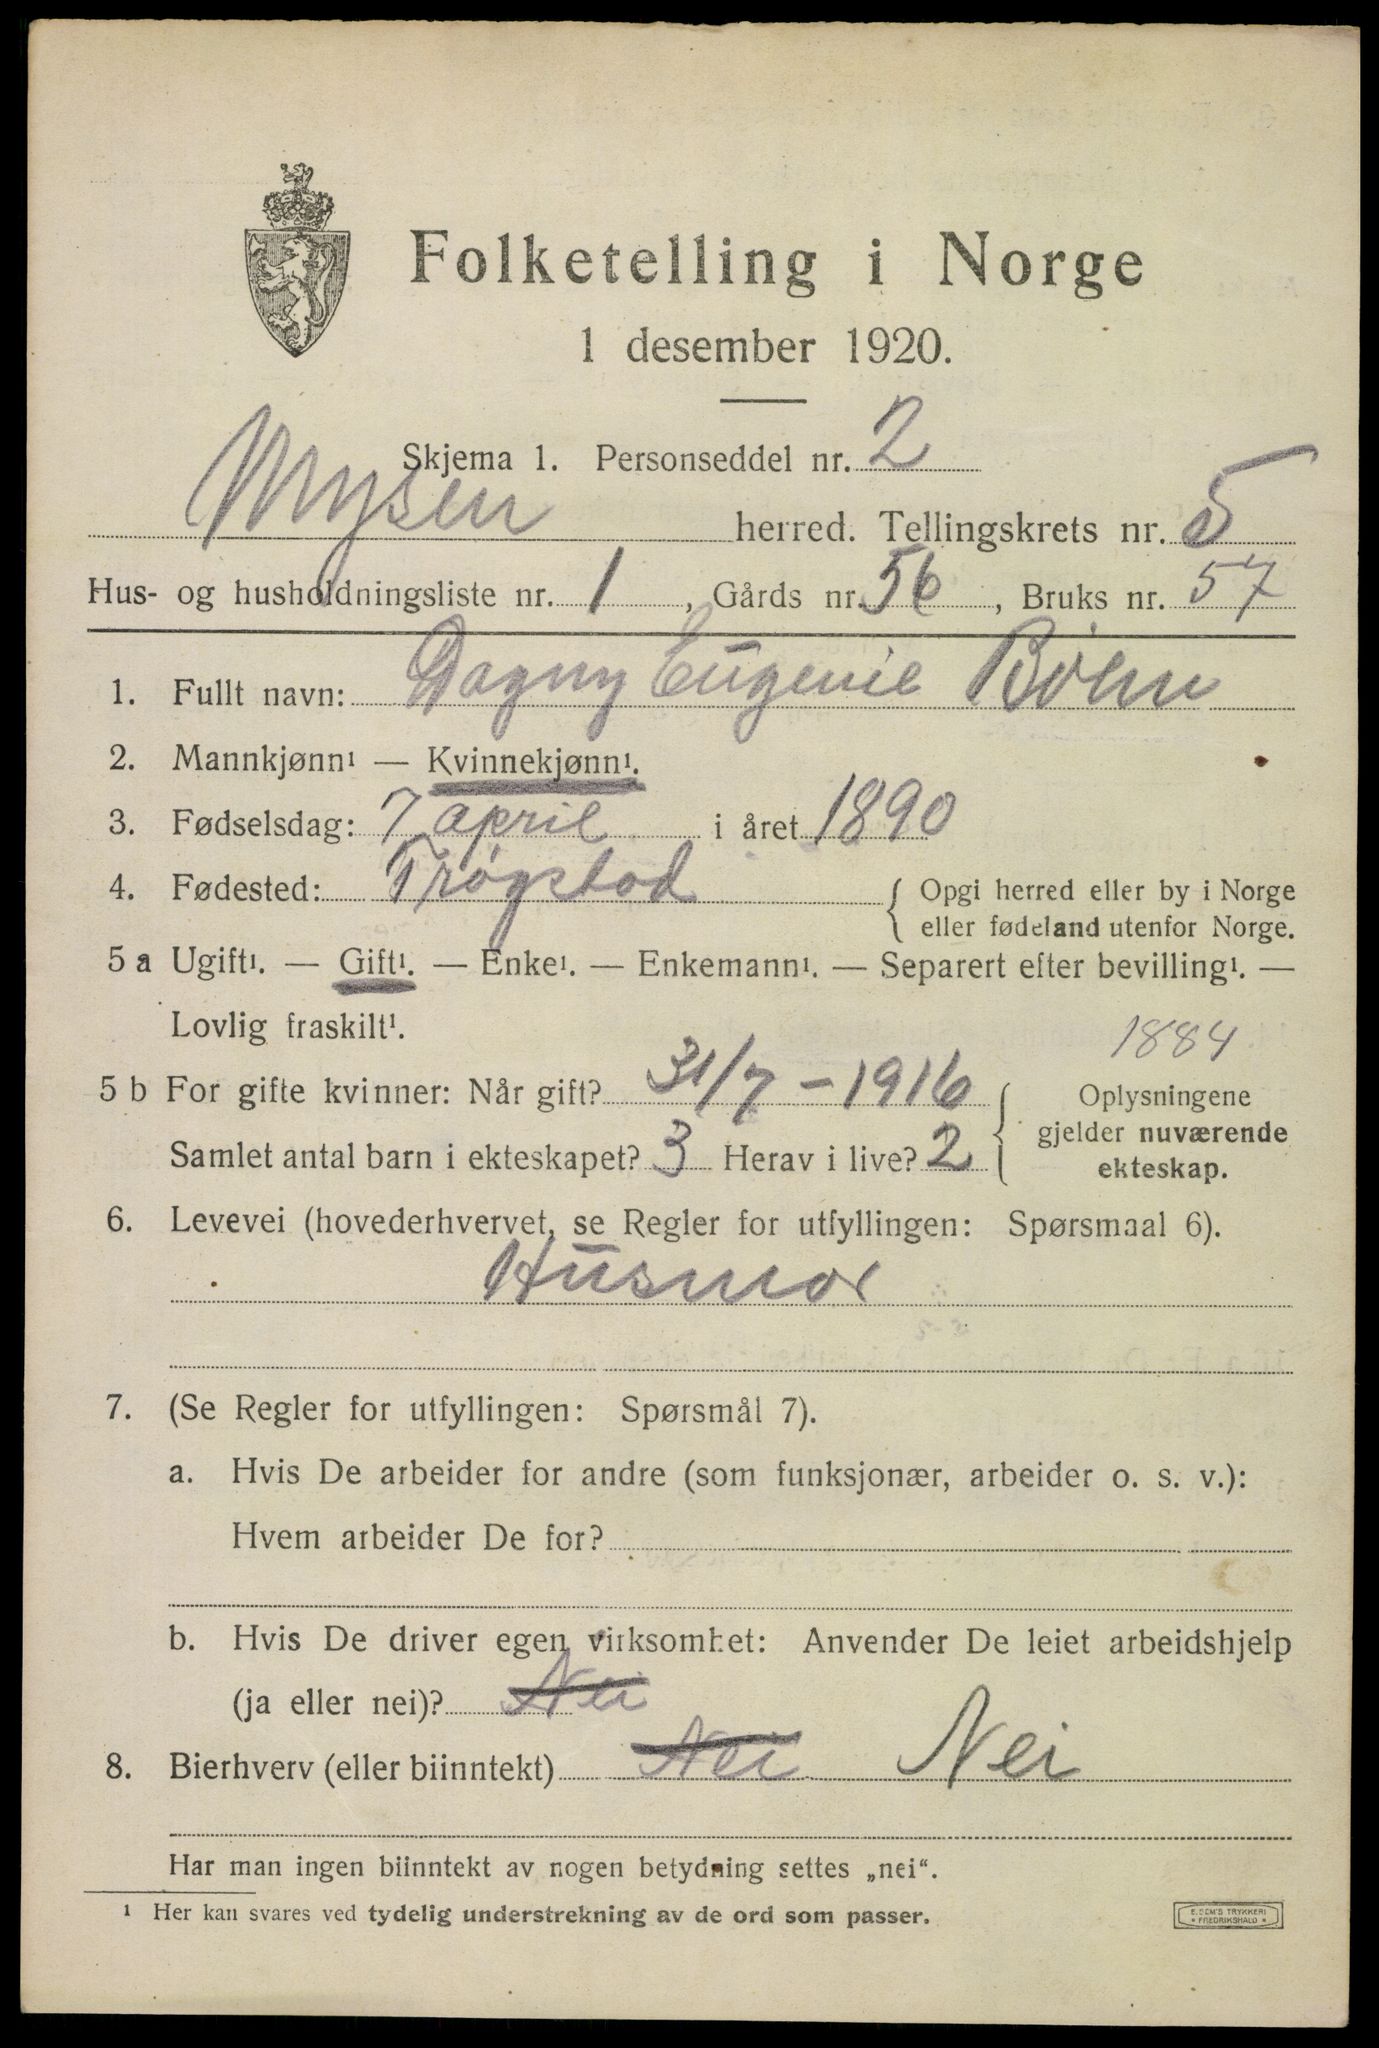 Folketelling i Norge
1 desember 1920.
Skjema 1. Personseddel nr. 2
Mysen herred. Tellingskrets nr. 5
Hus- og husholdningsliste nr. 1, Gårds nr. 56, Bruks nr. 57
1. Fullt navn: Dagny Eugenie Böhn
2. Mannkjønn¹ — Kvinnekjønn¹.
3. Fødselsdag: 7 april i året 1890
4. Fødested: Trøgstad { Opgi herred eller by i Norge
eller fødeland utenfor Norge.
5 a Ugift¹. — Gift¹. — Enke¹. — Enkemann¹. — Separert efter bevilling¹. —
Lovlig fraskilt¹.
1884
5 b For gifte kvinner: Når gift? 31/7 - 1916 { Oplysningene
gjelder nuværende
Samlet antal barn i ekteskapet? 3 Herav i live? 2
ekteskap.
6. Levevei (hovederhvervet, se Regler for utfyllingen: Spørsmaal 6).
Husmor
7. (Se Regler for utfyllingen: Spørsmål 7).
a. Hvis De arbeider for andre (som funksjonær, arbeider o. s. v.):
Hvem arbeider De for?
b. Hvis De driver egen virksomhet: Anvender De leiet arbeidshjelp
(ja eller nei)? Nei
8. Bierhverv (eller biinntekt) Nei Nei
Har man ingen biinntekt av nogen betydning settes „nei“.
¹ Her kan svares ved tydelig understrekning av de ord som passer.
E. SEM'S TRYKKERI
* FREDRIKSHALD *